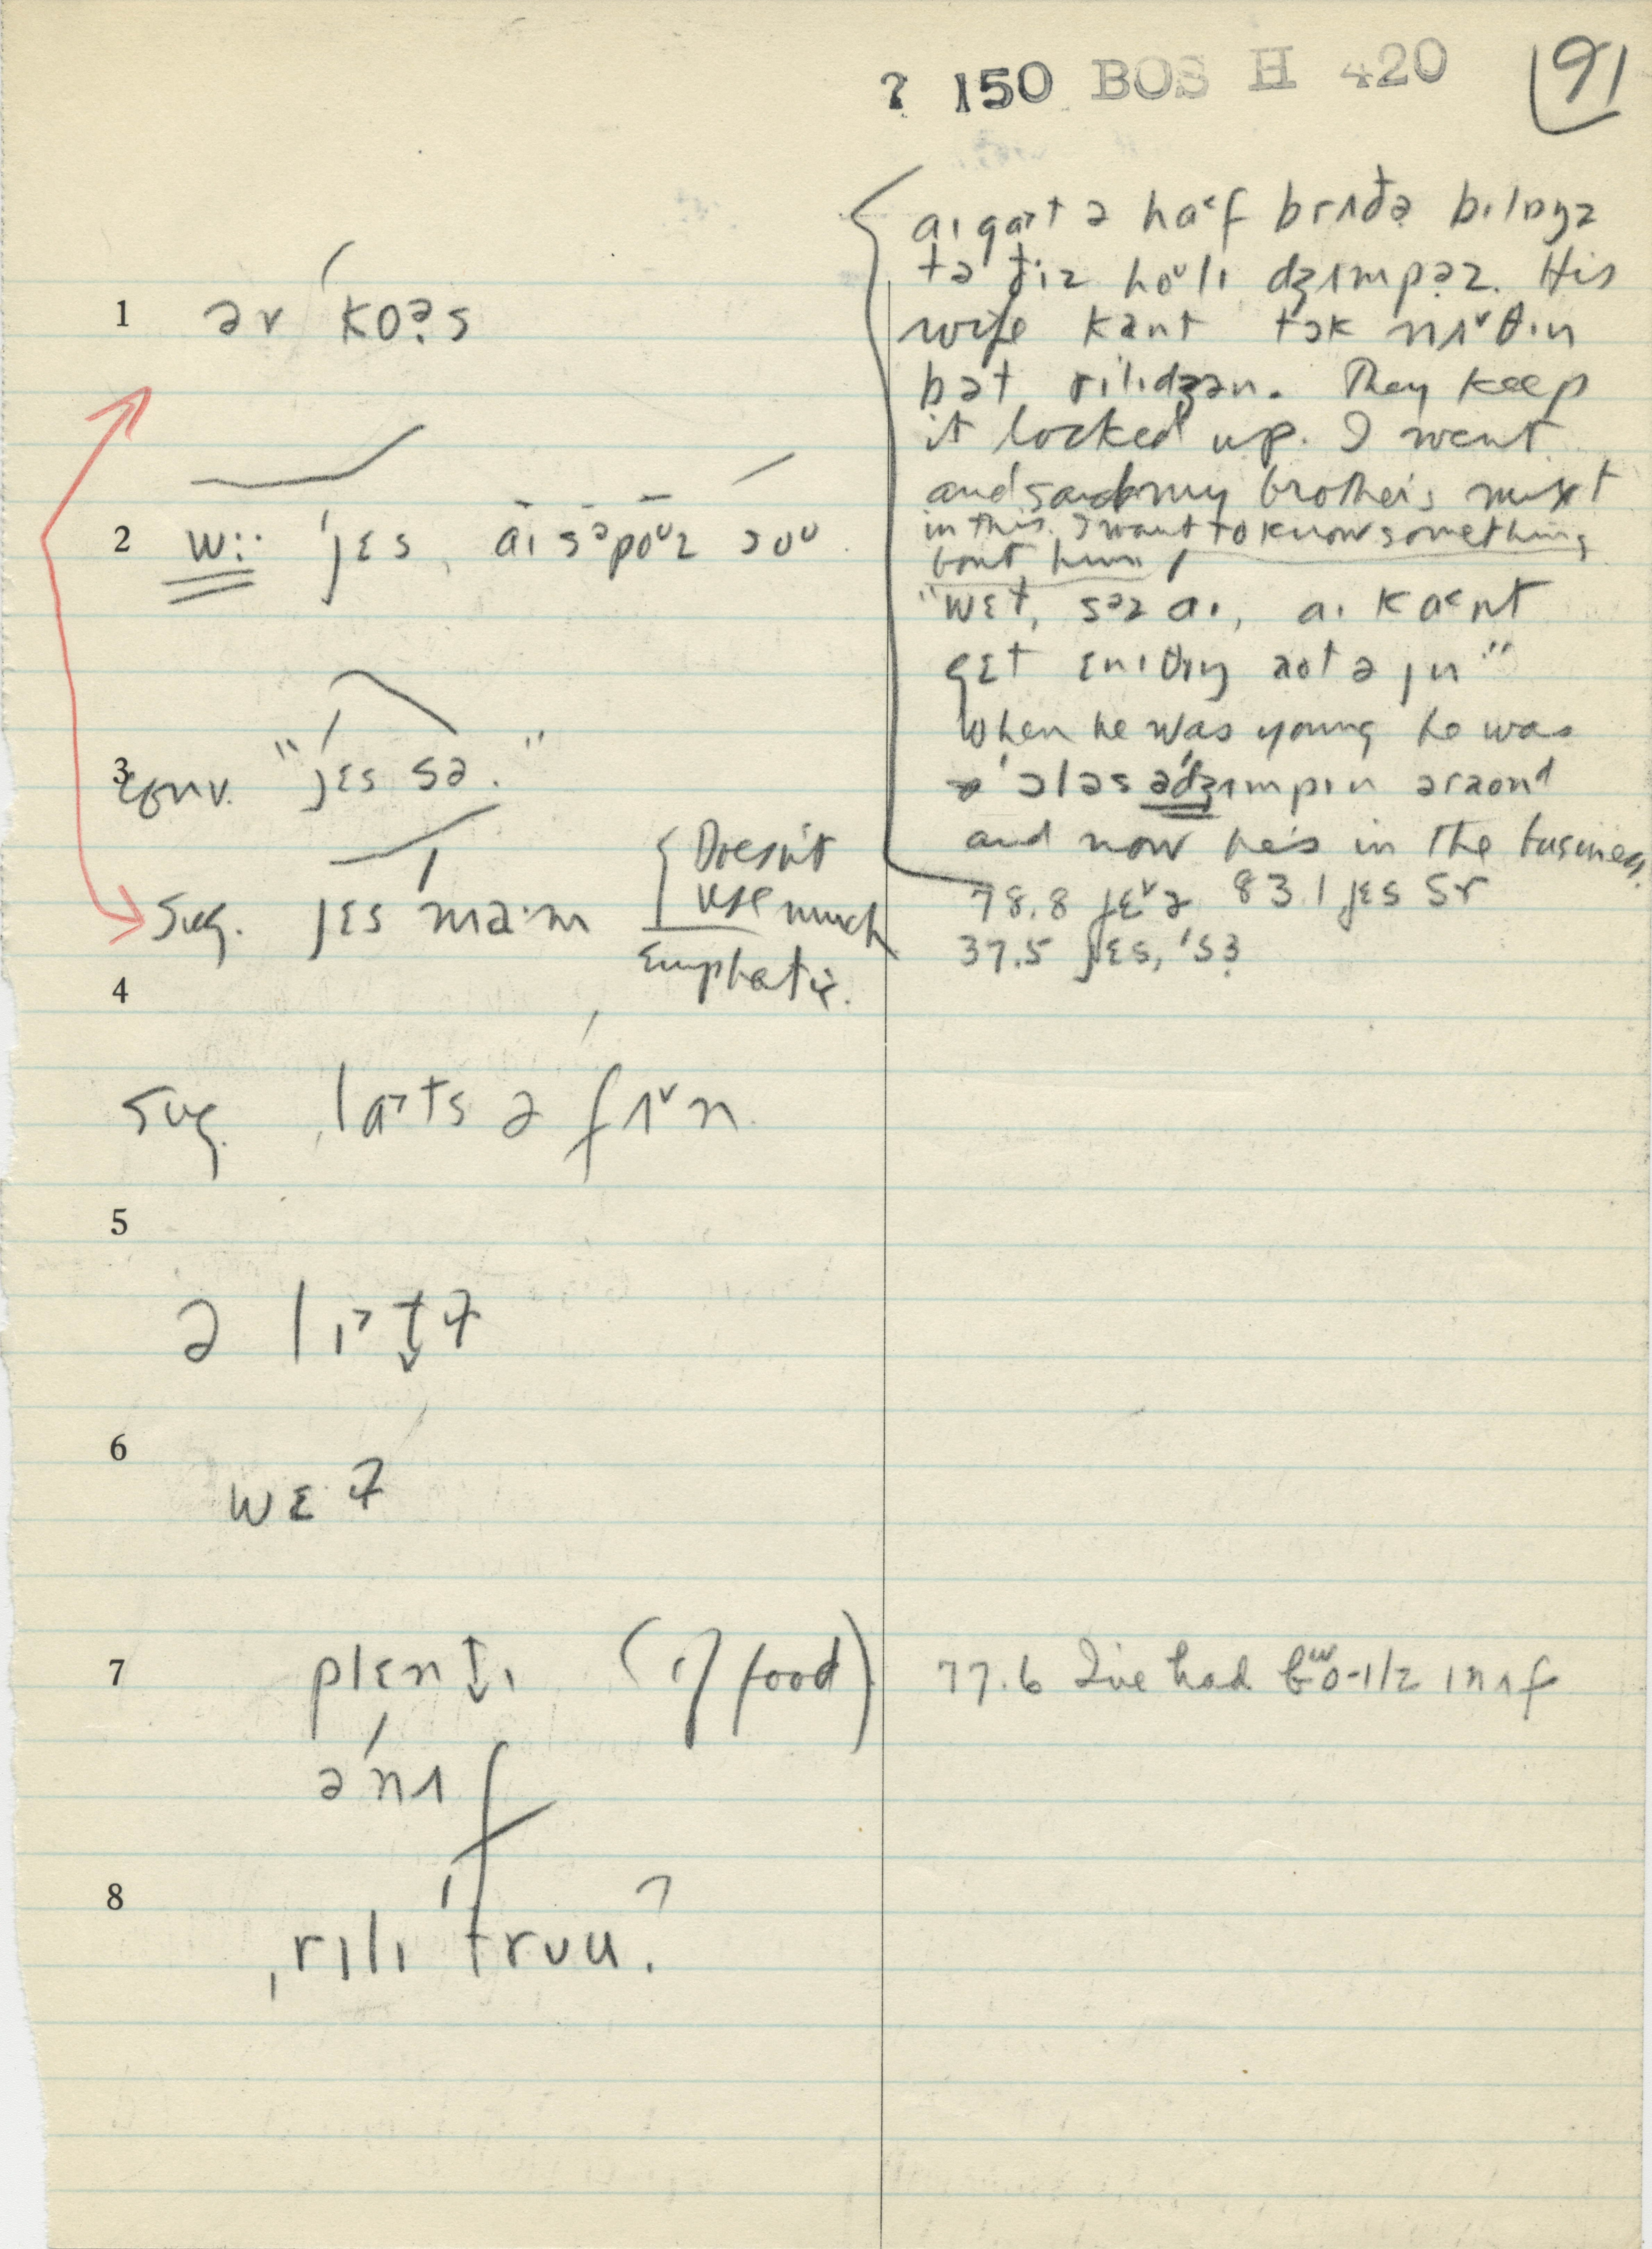 ? 150 BOS H 420
91
1 əv ˈkoə̣s
2 w:· ˈjɛs, aɪ sᵊpoᵘz soᵘ.
3 conv. "ˈjɛs sə."
Sug. jɛs ma·m { Doesn't
use much
Emphatic.
4
Sug. laˑts ə fʌˇn
5
ə lɪˑt̬ɫ
6
wɛɫ
7 plɛnt̬ɪ (of food)
əˈnʌf
8
ˌrɪlɪ ˈtrʊu?
aɪ gɑˑt ə haˑf brʌðə̣ bɪlɒŋz
tə ðiz hoᵘlɪ dʒʌmpə̣z. His
wife kant tɔk nʌˇθɪn
bət rɪlɪdʒən. They keep
it locked up. I went
and said my brother's mixt
in this. I want to know something
bout him
"wɛɫ, səz aɪ, aɪ kaˑnt
gɛt ɛnɪθɪŋ aot ə jʊ"
When he was young he was
ˈɔləs əˈdʒʌmpɪn əraond
and now he's in the business
78.8 jɛˇə 83.1 jɛs sr
37.5 jɛs, ˈsɜ
77.6 I've had 1/2 ɪnʌf